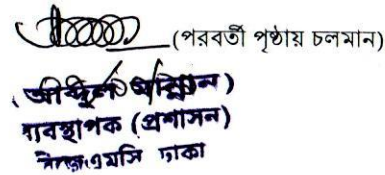 (পরবর্তী পৃষ্ঠায় চলমান)
(আব্দুল মান্নান)
ব্যবস্থাপক (প্রশাসন)
বিজেএমসি ঢাকা